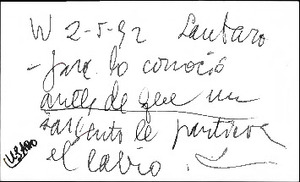 W 2-5-92 Lautaro
- Juez lo conoció
antes de que un
sargento le partiera
el labio.